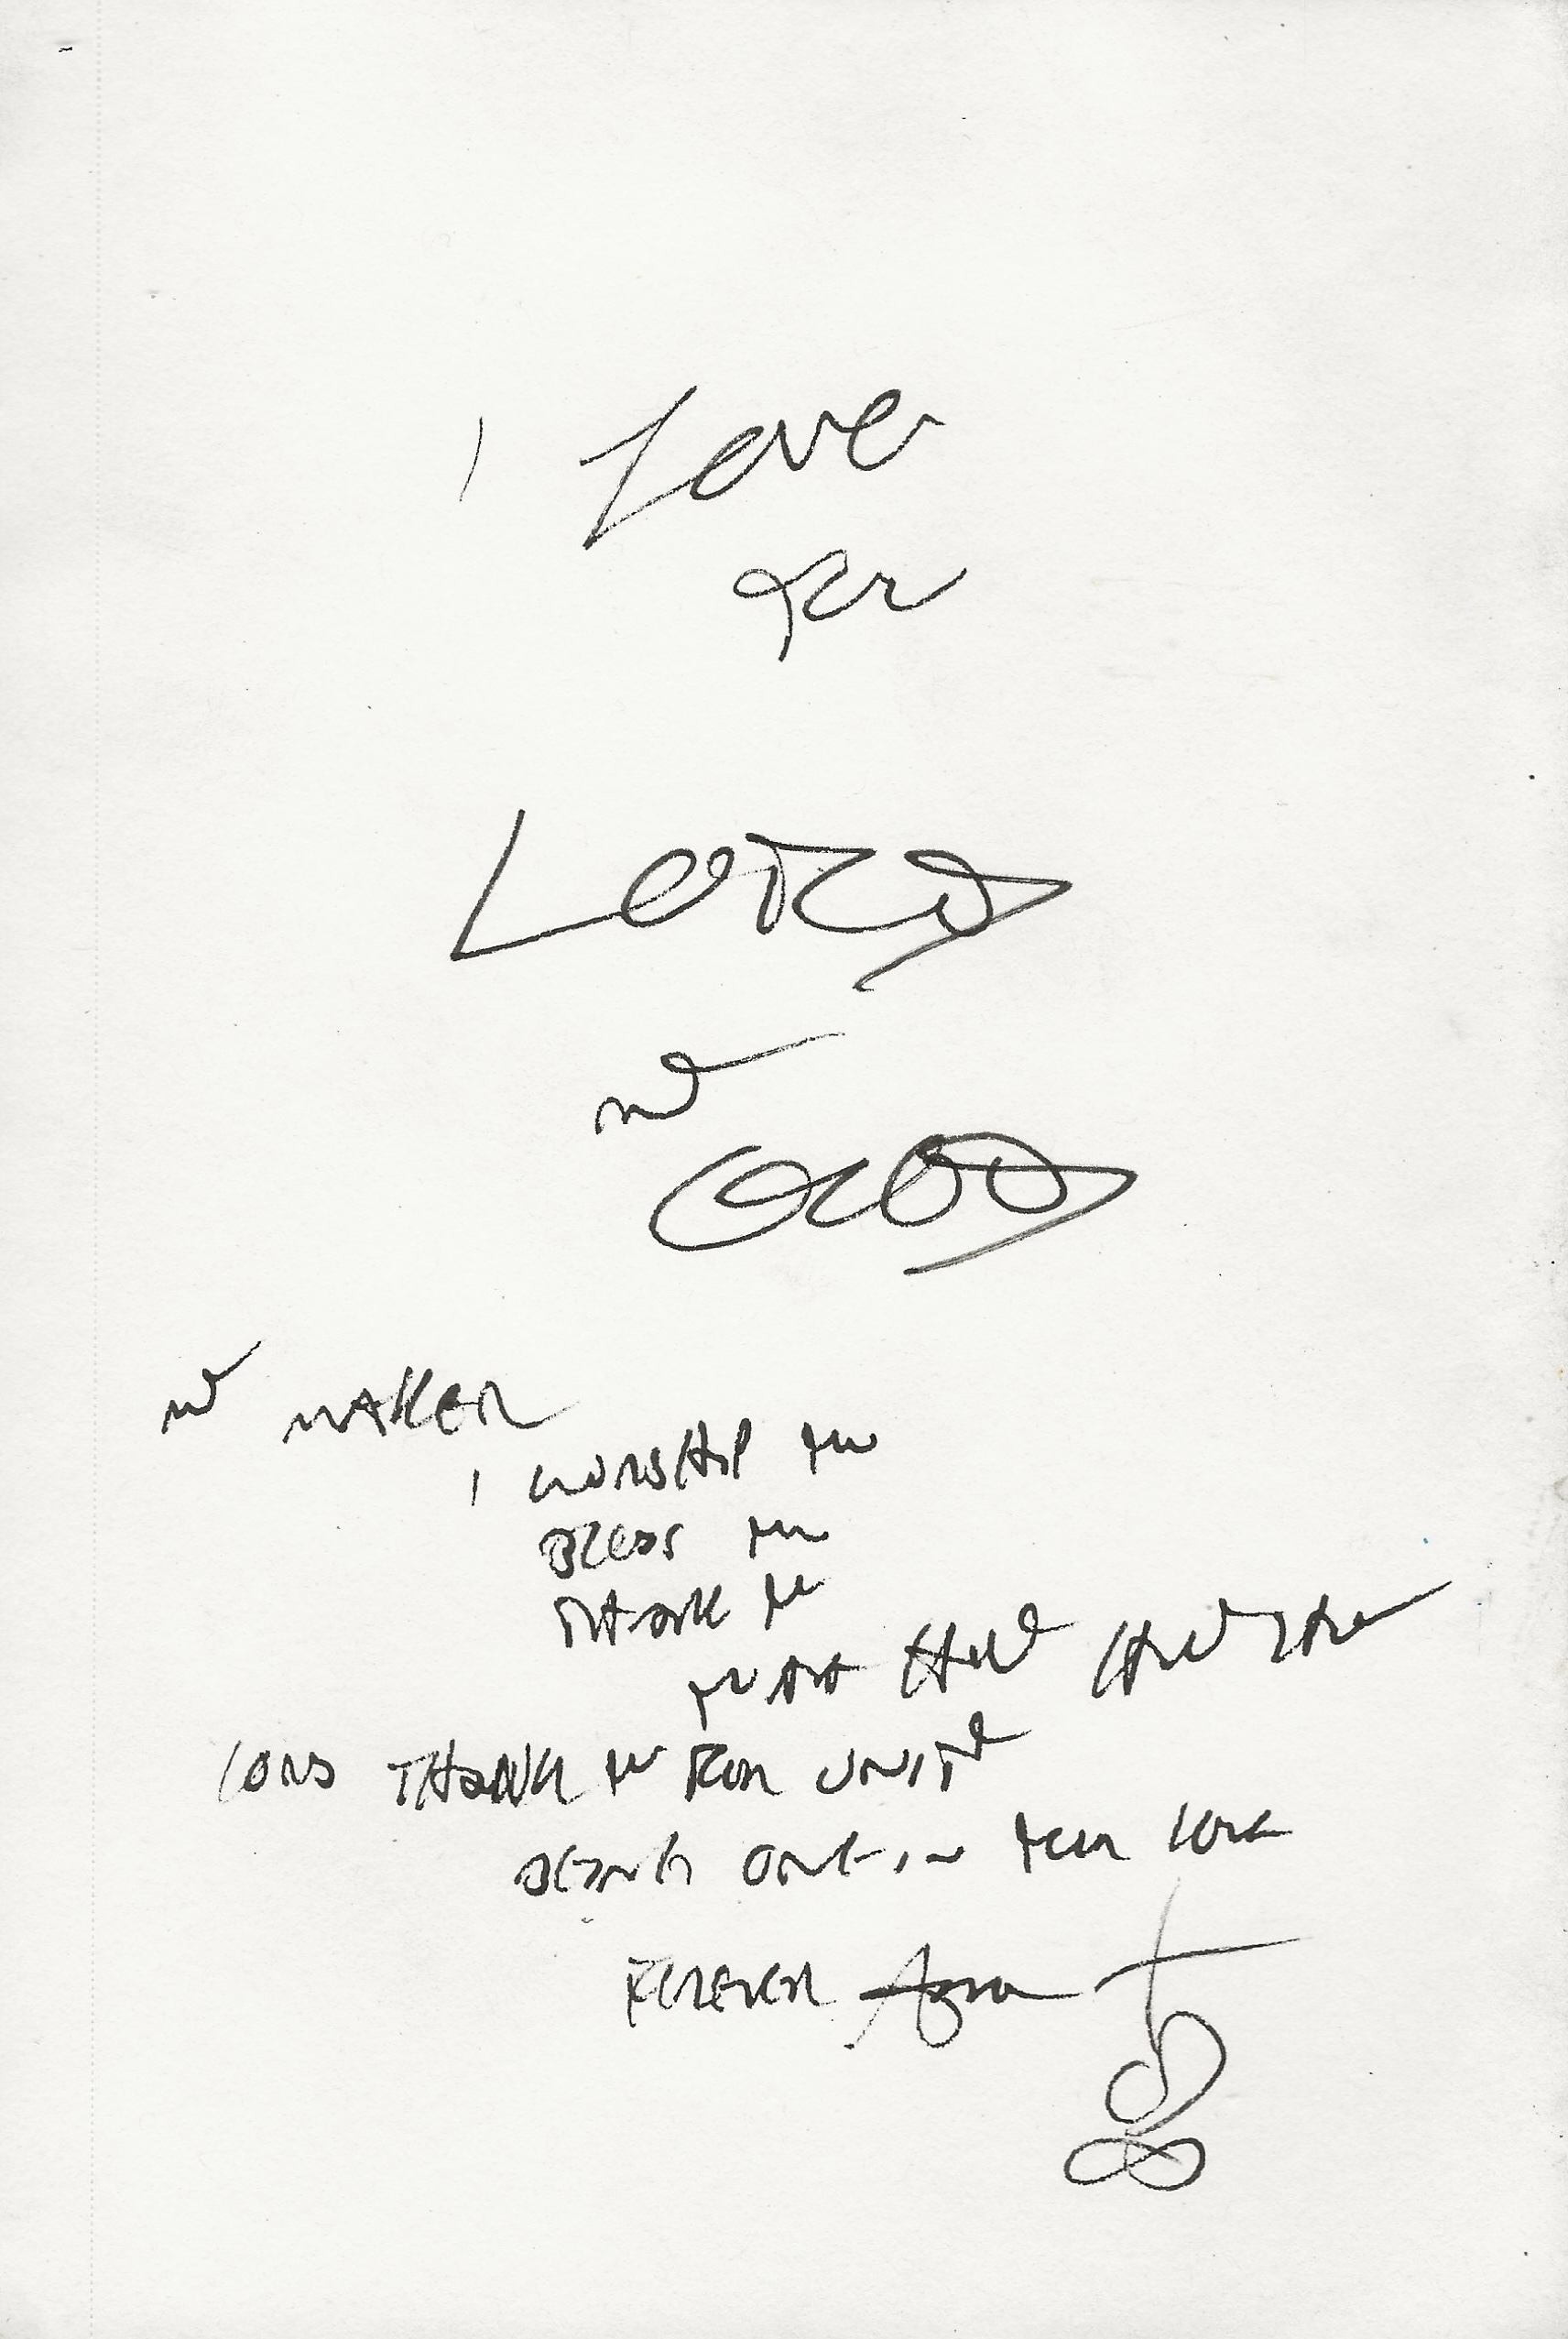 I Love
You
LORD
my
GOD
my MAKER
I WORSHIP YOU
BLESS YOU
THANK YOU
YOU ARE HOLY HOLY
LORD THANK YOU FOR UNITY
BEING ONE IN YOUR LOVE
FOREVER Amen